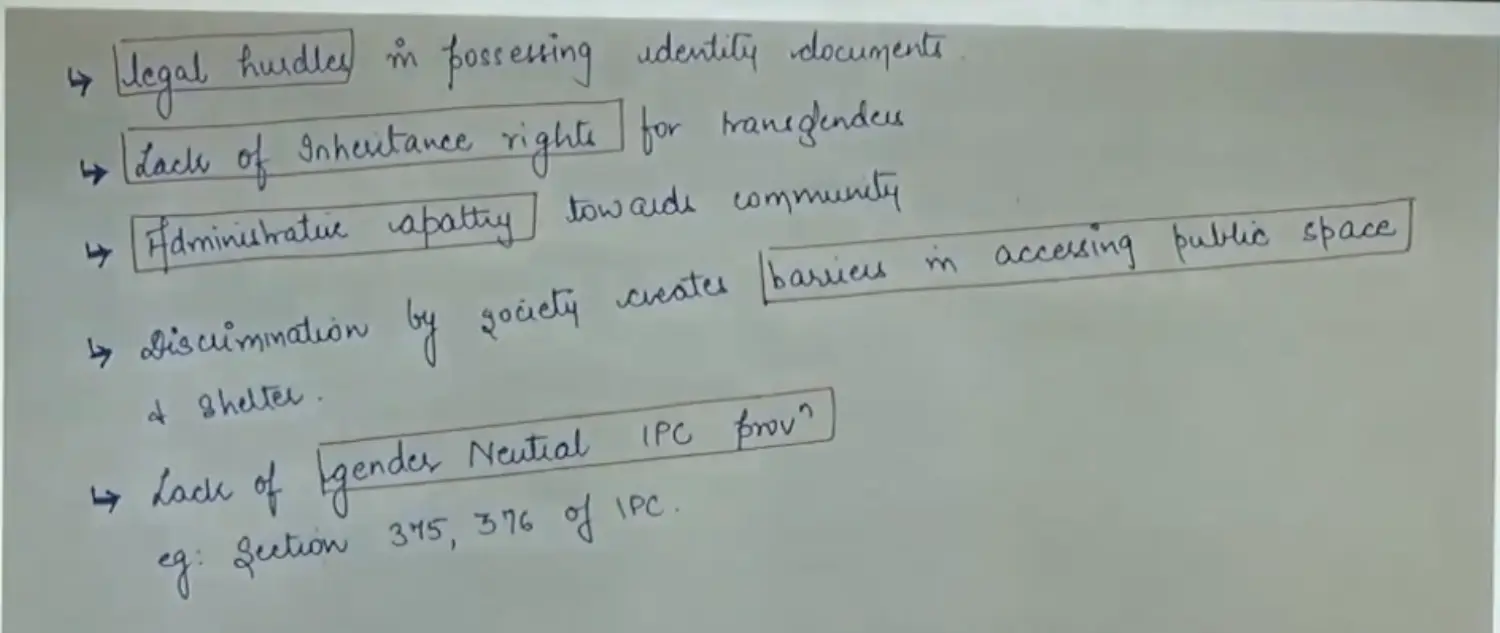 ↳ legal hurdles in possessing identity documents.
↳ Lack of Inheritance rights for transgenders
↳ Administrative apathy towards community
↳ Discrimination by society creates barriers in accessing public space
& shelter.
↳ Lack of gender Neutral IPC provⁿ
eg: Section 375, 376 of IPC.